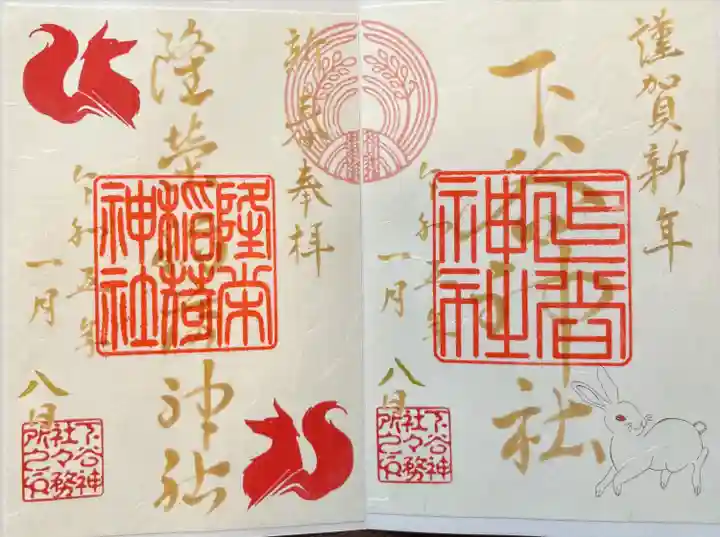 謹賀新年
下谷神社
下谷神社
令和五年
一月八日
下谷神社々務所之印
新春奉拝
隆栄稲荷神社
隆栄稲荷神社
令和五年
一月八日
下谷神社々務所之印